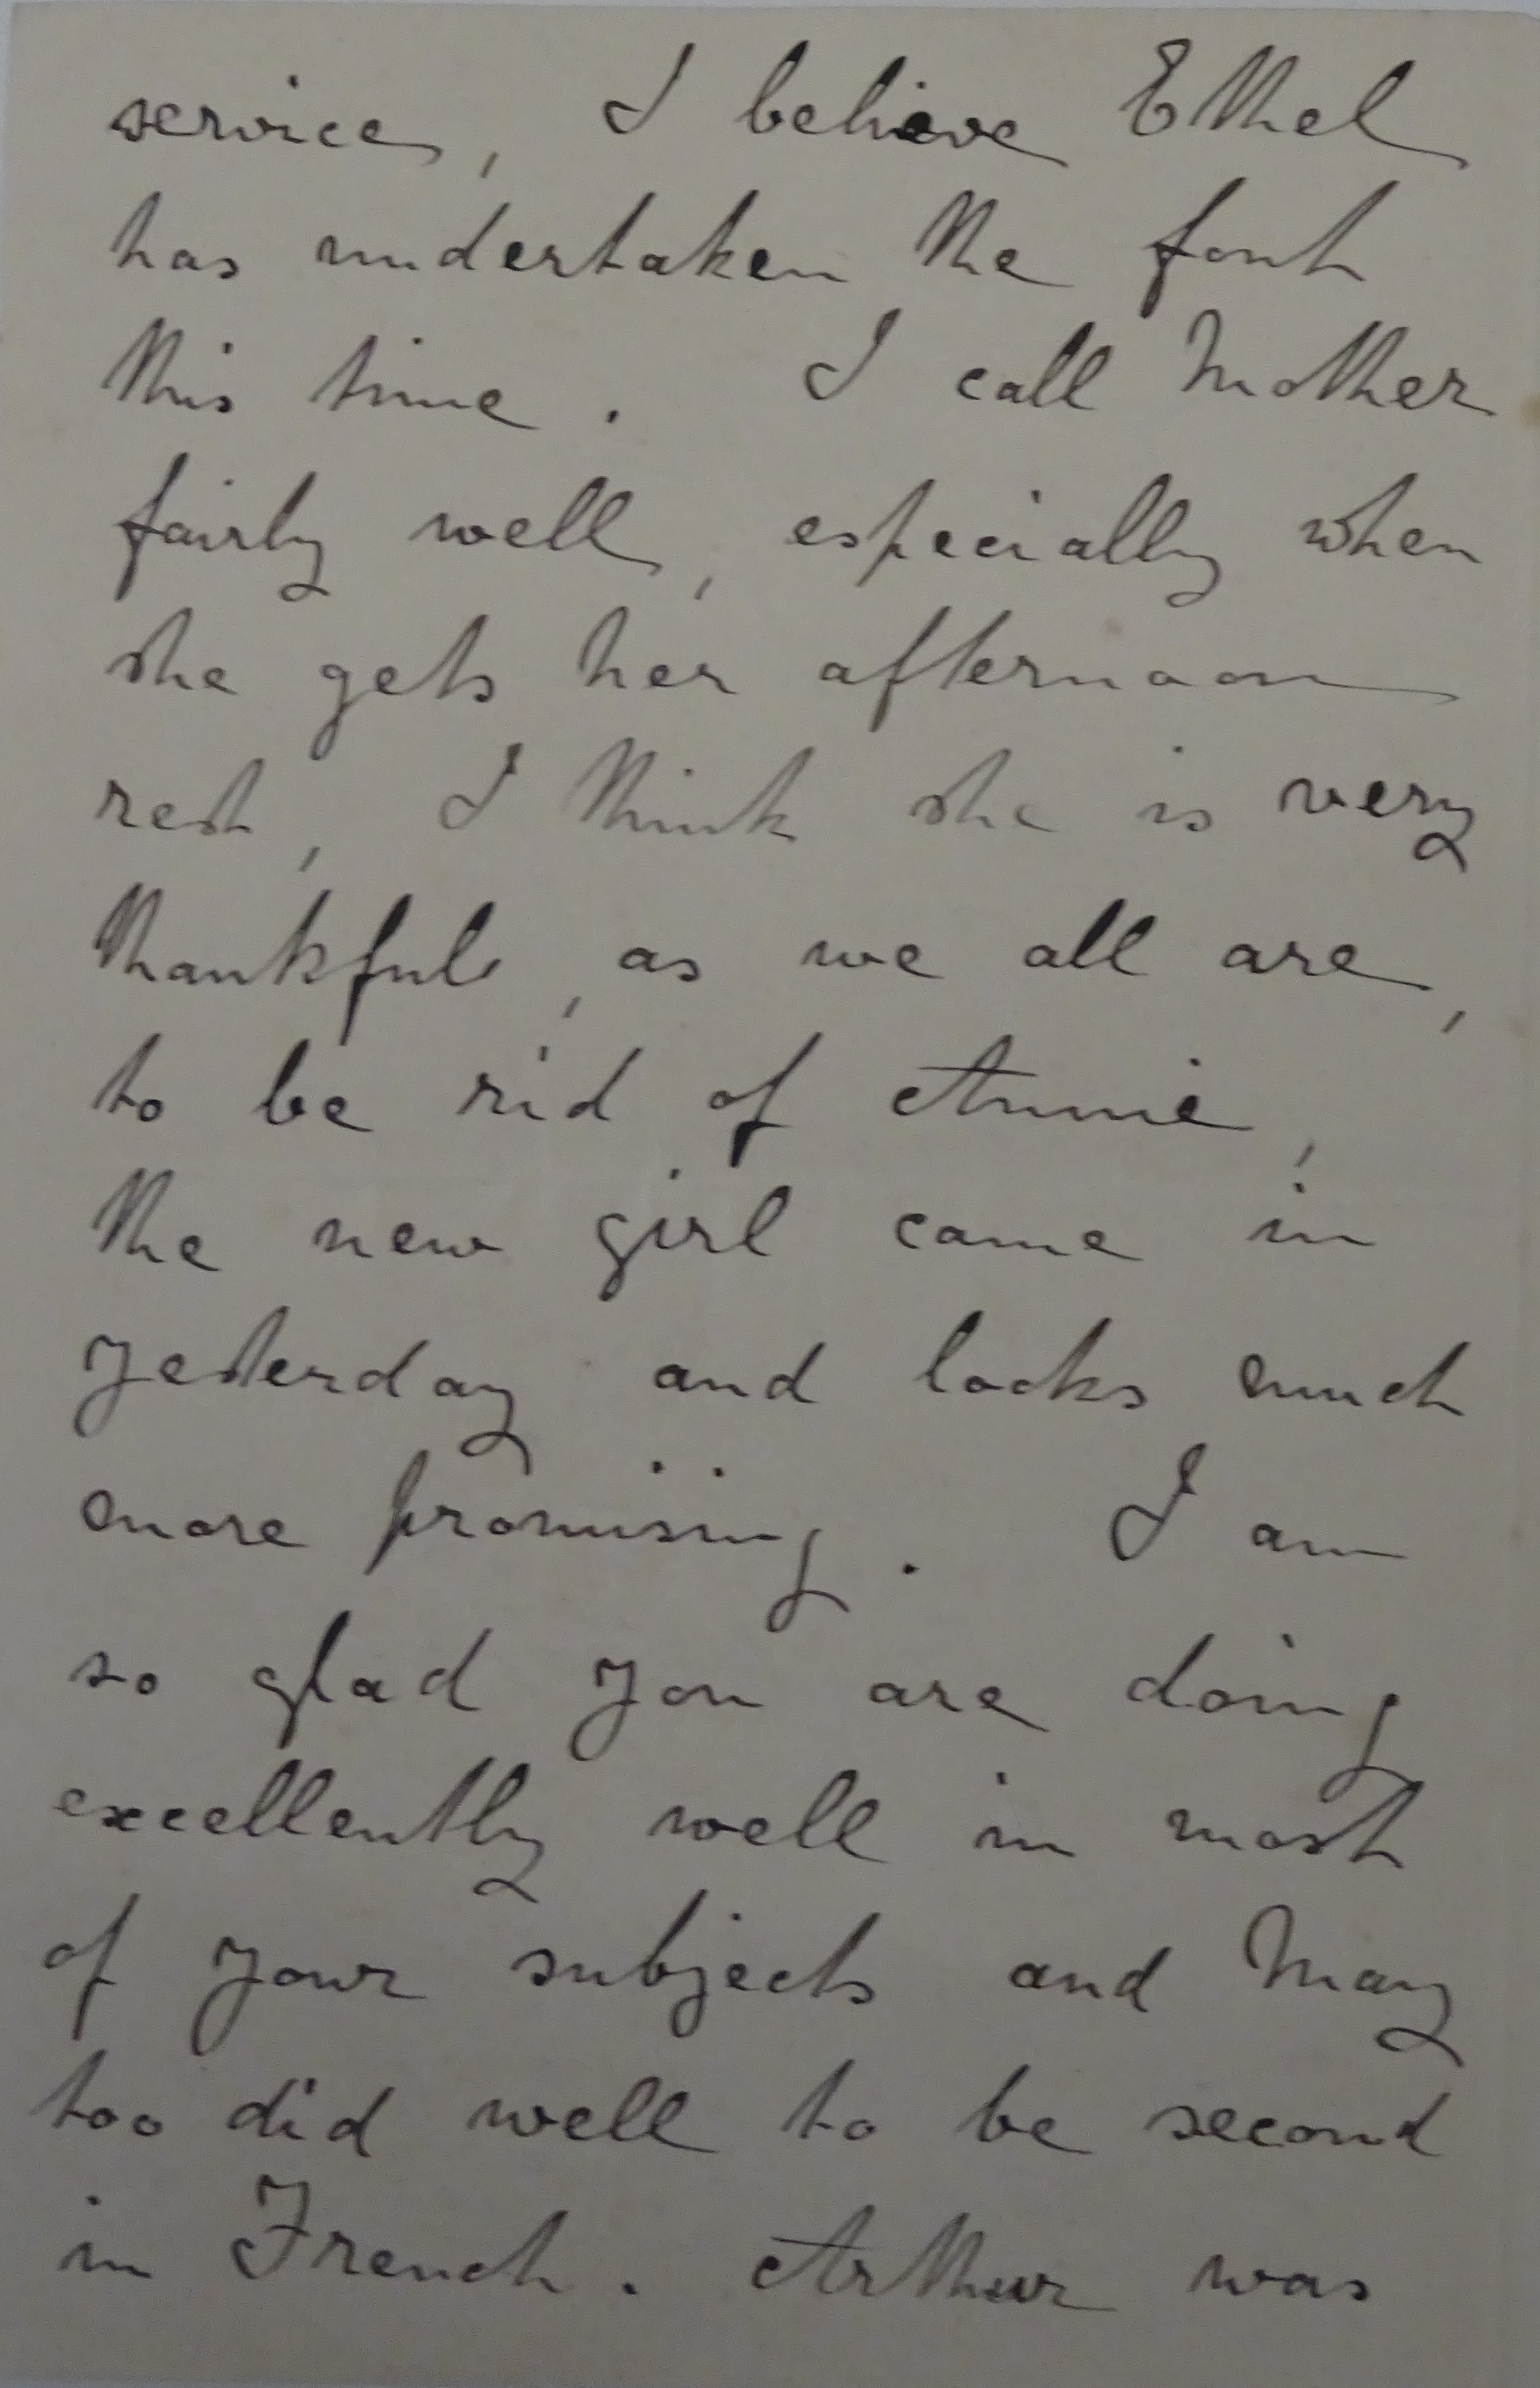 service, I believe Ethel
has undertaken the font
this time. I call Mother
fairly well, especially when
she gets her afternoon
rest, I think she is very
thankful, as we all are,
to be rid of Annie,
the new girl came in
yesterday and looks much
more promising. I am
so glad you are doing
excellently well in most
of your subjects and May
too did well to be second
in French. Arthur was